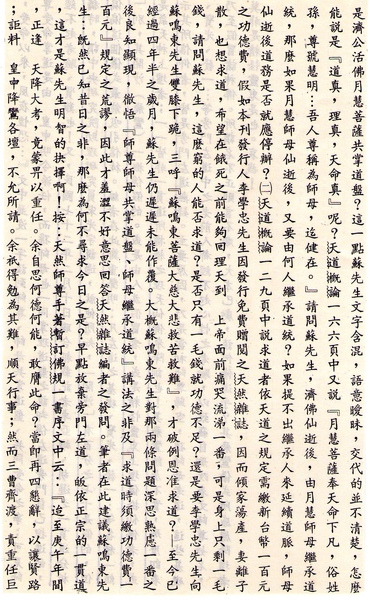 是濟公活佛月慧菩薩共掌道盤？這一點蘇先生文字含混，語意曖昧，交代的並不清楚，怎麼
能說是『道真，理真，天命真』呢？天道概論一六六頁中又說『月慧菩薩奉天命下凡，俗姓
孫，尊號慧明…吾人尊稱為師母，迄健在。』請問蘇先生，濟佛仙逝後，由月慧師母繼承道
統，那麼如果月慧師母仙逝後，又要由何人繼承道統？如果提不出繼承人來延續道脈，師母
仙逝後道務是否就應停辦？㈡天道概論一二九頁中說求道者依天道之規定需繳新台幣一百元
之功德費，假如本刊發行人李學忠先生因發行免費贈閱之天然雜誌，因而傾家蕩產，妻離子
散，也想求道，希望在餓死之前能夠回理天到　上帝面前痛哭流涕一番，可是身上只剩一毛
錢，請問蘇先生，這麼窮的人能否求道？是否只有一毛錢就功德不足？還是要李學忠先生向
蘇鳴東先生雙膝下跪，三呼『蘇鳴東菩薩大慈大悲救苦救難』，才破例恩准求道？—至今已
經過四年半之歲月，蘇先生仍遲遲未能作覆。大概蘇鳴東先生對那兩條問題深思熟慮一番之
後良知顯現，徹悟『師尊師母共掌道盤、師母繼承道統』講法之非及『求道時須繳功德費一
百元』規定之荒謬，因此才羞澀不好意思回答天然雜誌編者之發問。筆者在此建議蘇鳴東先
生：既然已知昔日之非，那麼為何不尋求今日之是？早點放棄旁門左道，皈依正宗的一貫道
，這才是蘇先生明智的抉擇啊！按：天然師尊手著暫訂佛規一書序文中云：『迨至庚午年間
，正逢　天降大考，竟蒙畀以重任。余自思何德何能，敢膺此命？當即再四懇辭，以讓賢路
；詎料　皇中降鸞各壇，不允所請。余祇得勉為其難，順天行事；然而三曹齊渡，責重任巨